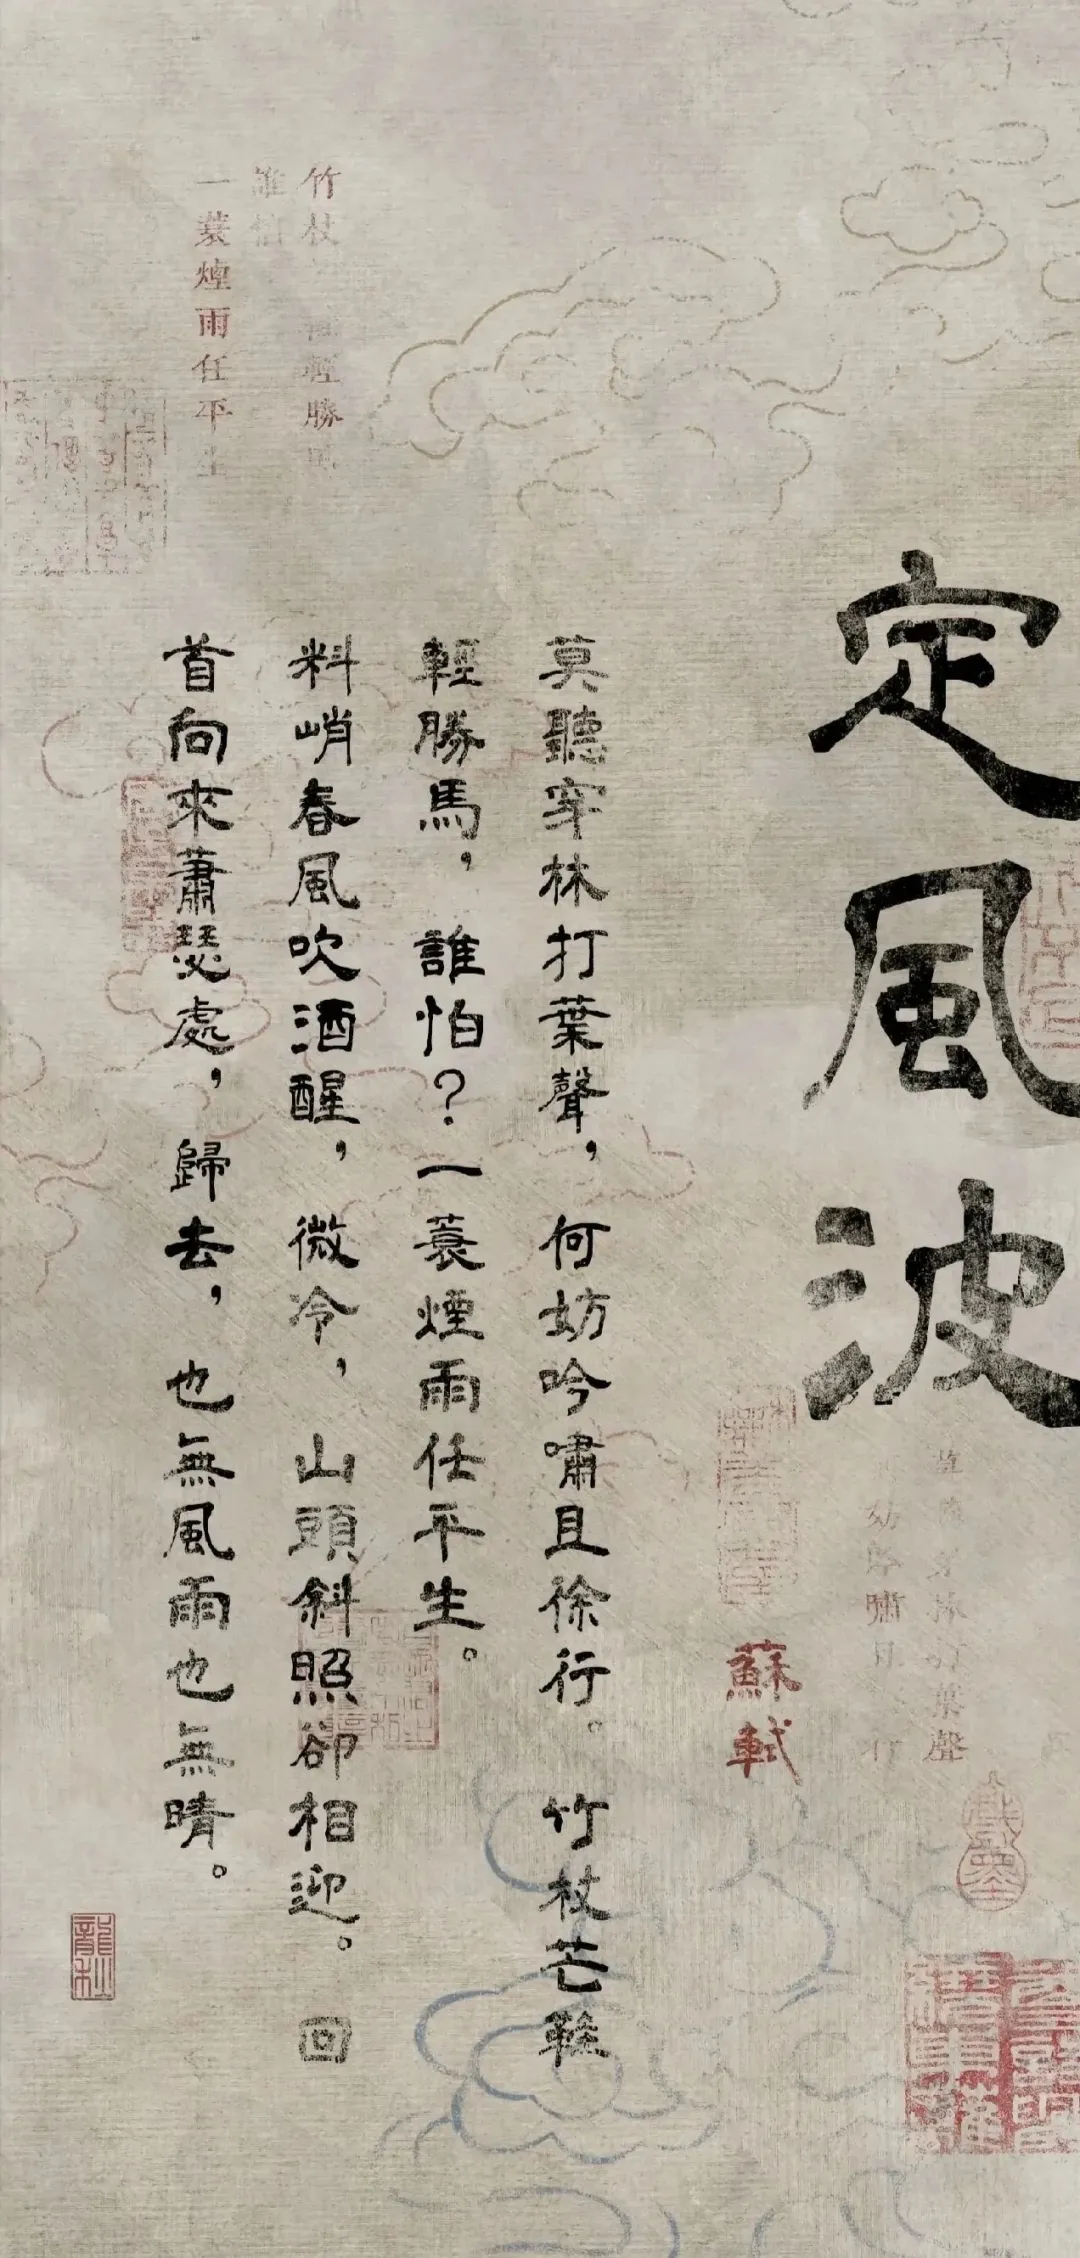 定風波
蘇軾
莫聽穿林打葉聲，何妨吟嘯且徐行。竹杖芒鞋
輕勝馬，誰怕？一蓑煙雨任平生。
料峭春風吹酒醒，微冷，山頭斜照卻相迎。回
首向來蕭瑟處，歸去，也無風雨也無晴。
竹杖 輕勝馬
誰怕
一蓑煙雨任平生